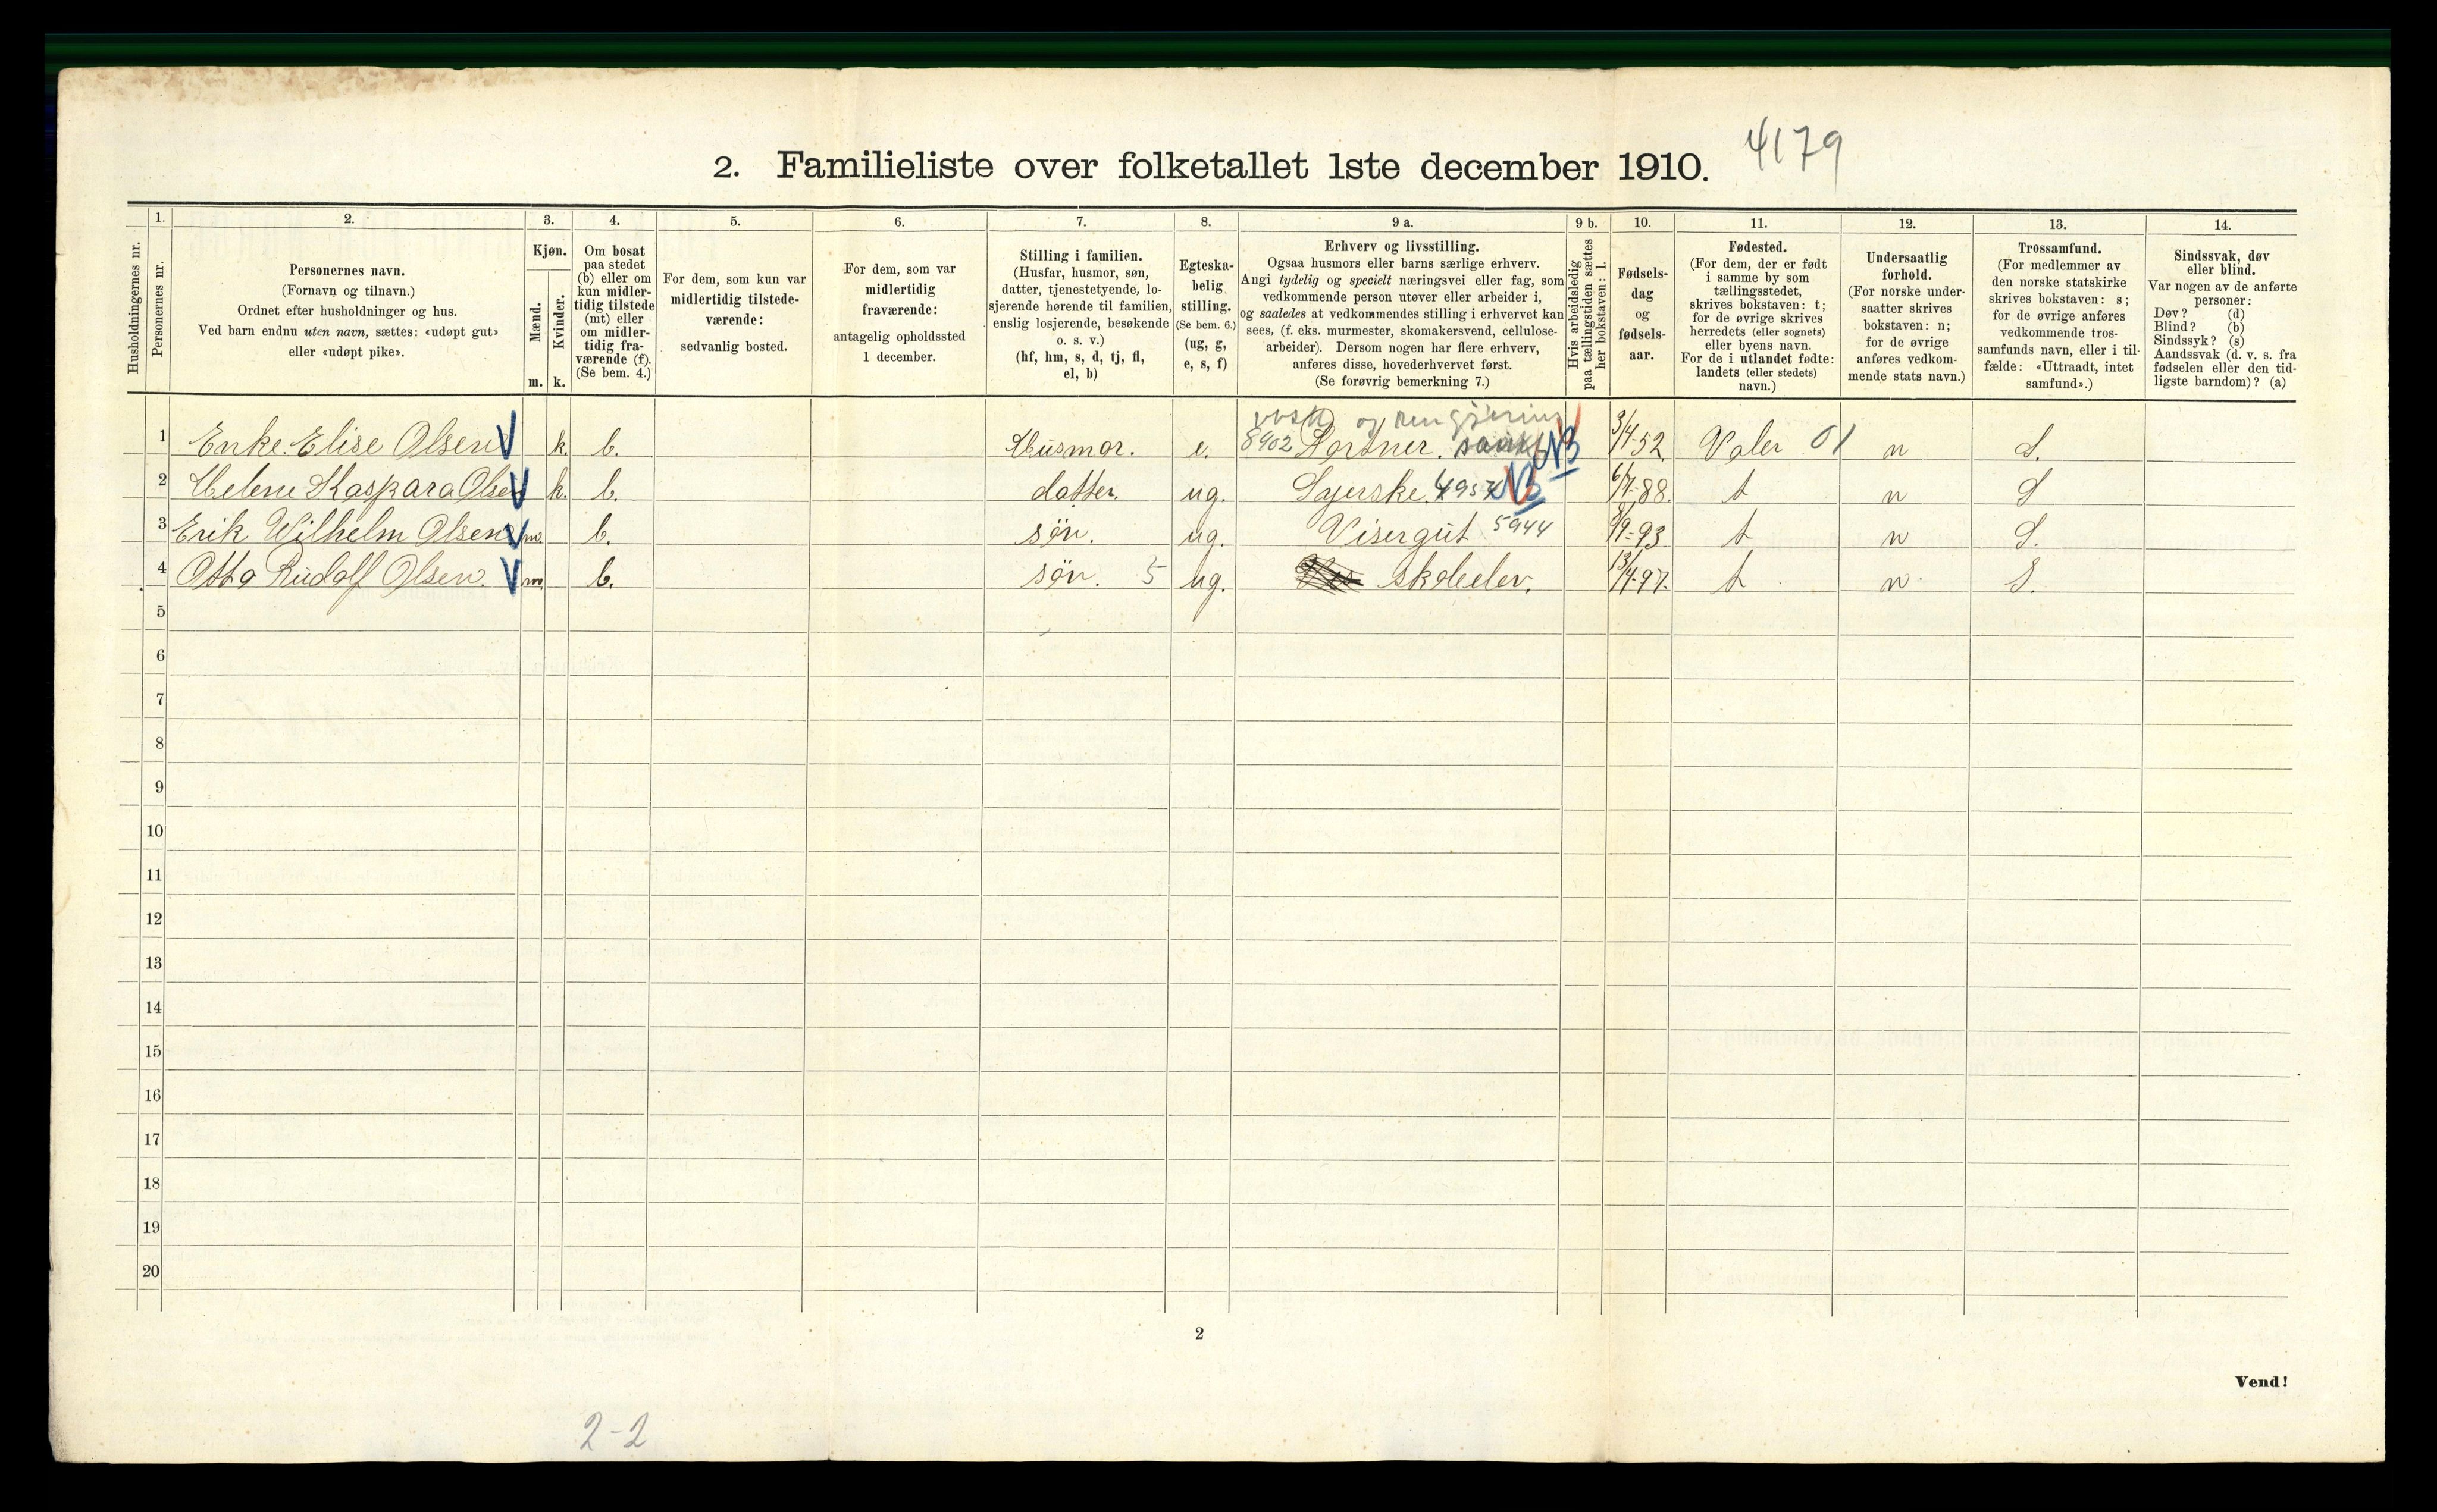 4179
2. Familieliste over folketallet 1ste december 1910.
Husholdningernes nr.
1.
Personernes nr.
2.
Personernes navn.
(Fornavn og tilnavn.)
Ordnet efter husholdninger og hus.
Ved barn endnu uten navn, sættes: «udøpt gut»
eller «udøpt pike».
3.
Kjøn.
Mænd.
Kvinder.
m. k.
4.
Om bosat
paa stedet
(b) eller om
kun midler-
tidig tilstede
(mt) eller
om midler-
tidig fra-
værende (f).
(Se bem. 4.)
5.
For dem, som kun var
midlertidig tilstede-
værende:
sedvanlig bosted.
6.
For dem, som var
midlertidig
fraværende:
antagelig opholdssted
1 december.
7.
Stilling i familien.
(Husfar, husmor, søn,
datter, tjenestetyende, lo-
sjerende hørende til familien,
enslig losjerende, besøkende
o. s. v.)
(hf, hm, s, d, tj, fl,
el, b)
8.
Egteska-
belig
stilling.
(Se bem. 6.)
(ug, g,
e, s, f)
9 a.
Erhverv og livsstilling.
Ogsaa husmors eller barns særlige erhverv.
Angi tydelig og specielt næringsvei eller fag, som
vedkommende person utøver eller arbeider i,
og saaledes at vedkommendes stilling i erhvervet kan
sees, (f. eks. murmester, skomakersvend, cellulose-
arbeider). Dersom nogen har flere erhverv,
anføres disse, hovederhvervet først.
(Se forøvrig bemerkning 7.)
9 b.
Hvis arbeidsledig
paa tællingstiden sættes
her bokstaven: l.
10.
Fødsels-
dag
og
fødsels-
aar.
11.
Fødested.
(For dem, der er født
i samme by som
tællingsstedet,
skrives bokstaven: t;
for de øvrige skrives
herredets (eller sognets)
eller byens navn.
For de i utlandet fødte:
landets (eller stedets)
navn.)
12.
Undersaatlig
forhold.
(For norske under-
saatter skrives
bokstaven: n;
for de øvrige
anføres vedkom-
mende stats navn.)
13.
Trossamfund.
(For medlemmer av
den norske statskirke
skrives bokstaven: s;
for de øvrige anføres
vedkommende tros-
samfunds navn, eller i til-
fælde: «Uttraadt, intet
samfund».)
14.
Sindssvak, døv
eller blind.
Var nogen av de anførte
personer:
Døv? (d)
Blind? (b)
Sindssyk? (s)
Aandssvak (d. v. s. fra
fødselen eller den tid-
ligste barndom)? (a)
vask og rengjøring
1 Enke. Elise Olsen V k. b. Husmor. e. 8902 Portner. NB 3/4-52. Valer 01 n S.
2 Helene Kaspara Olsen V k. b. datter. ug. Syerske. 4957 NB 6/7-88. t n S
3 Erik Wilhelm Olsen V m. b. søn. ug. Visergut 5944 8/9-93 t n S.
4 Otto Rudolf Olsen. V m. b. søn. 5 ug. skoleelev. 13/4-97. t n. S.
5
6
7
8
9
10
11
12
13
14
15
16
17
18
19
20
2
Vend!
2-2